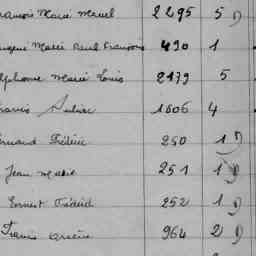 François Marie Marcel 2295 5 D
Eugène Marie Paul François 490 1
Alphonse Marie Louis 2179 5
Francis 1606 4
Fernand Frédéric 250 1 D
Jean Marie 251 1 D
Ernest Frédéric 252 1 D
Francis 964 2 D